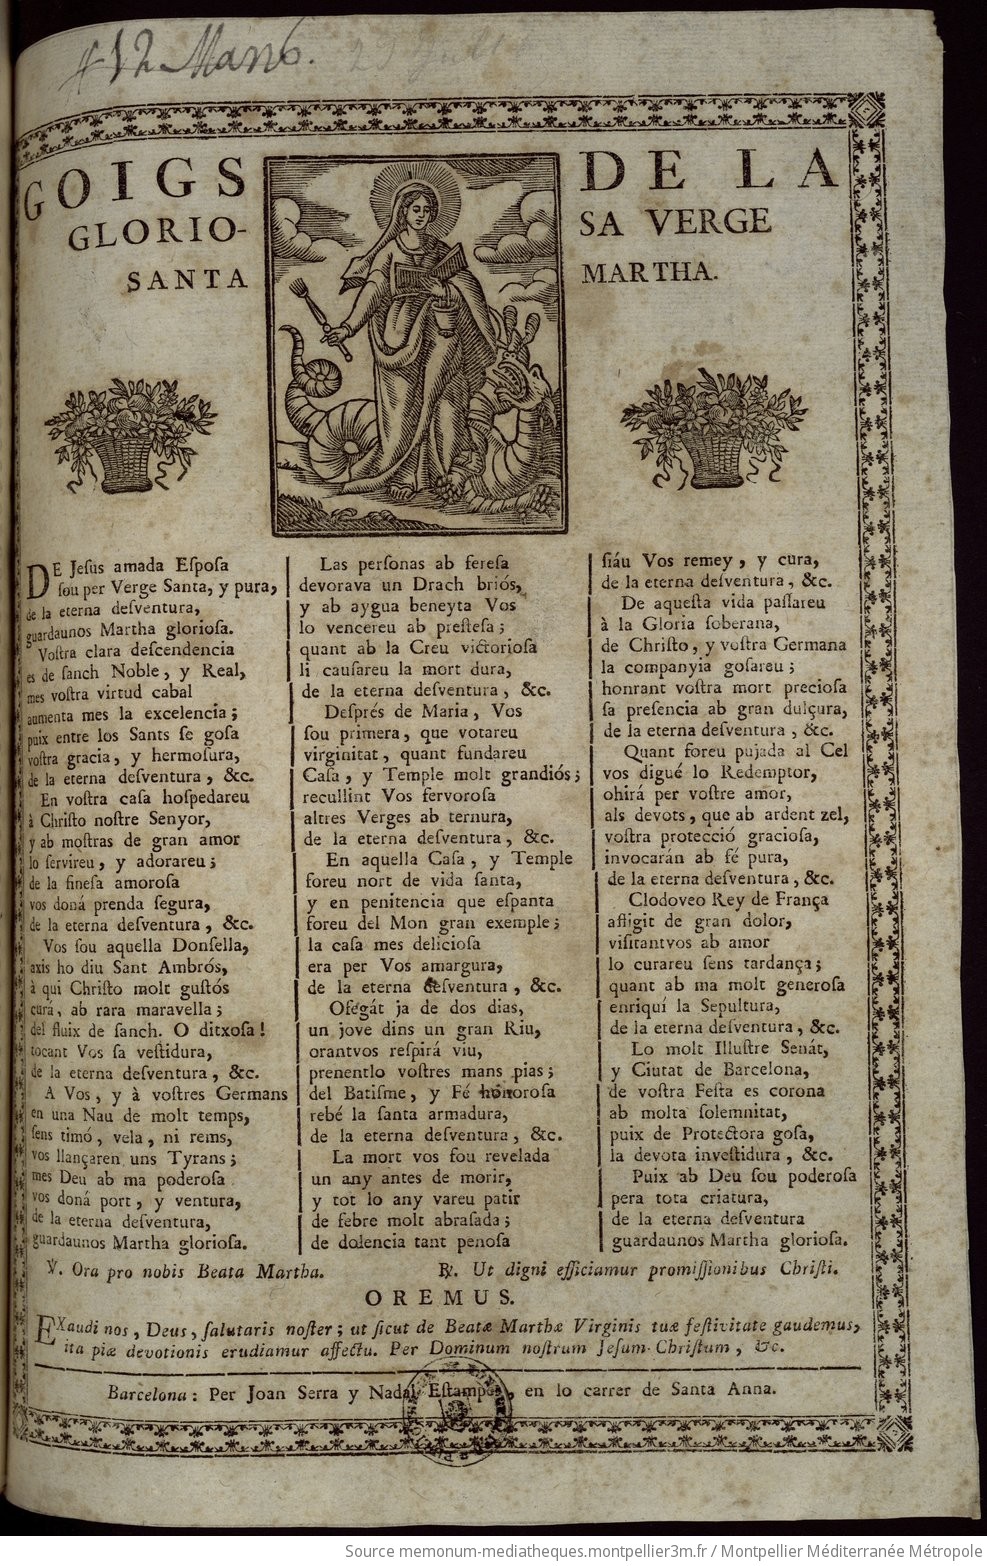 412 Mano.
GOIGS DE LA
GLORIO- SA VERGE
SANTA MARTHA.
DE Jesús amada Esposa
sou per Verge Santa, y pura,
de la eterna desventura,
guardaunos Martha gloriosa.
Vostra clara descendencia
es de sanch Noble, y Real,
mes vostra virtud cabal
aumenta mes la excelencia;
puix entre los Sants se gosa
vostra gracia, y hermosura,
de la eterna desventura, &c.
En vostra casa hospedareu
à Christo nostre Senyor,
y ab mostras de gran amor
lo servireu, y adorareu;
de la finesa amorosa
vos doná prenda segura,
de la eterna desventura, &c.
Vos sou aquella Donsella,
axis ho diu Sant Ambrós,
à qui Christo molt gustós
cura, ab rara maravella;
del fluix de sanch. O ditxosa!
tocant Vos sa vestidura,
de la eterna desventura, &c.
A Vos, y à vostres Germans
en una Nau de molt temps,
sens timó, vela, ni rems,
vos llançaren uns Tyrans;
mes Deu ab ma poderosa
vos doná port, y ventura,
de la eterna desventura,
guardaunos Martha gloriosa.
Las personas ab feresa
devorava un Drach briós,
y ab aygua beneyta Vos
lo vencereu ab prestesa;
quant ab la Creu victoriosa
li causareu la mort dura,
de la eterna desventura, &c.
Després de Maria, Vos
sou primera, que votareu
virginitat, quant fundareu
Casa, y Temple molt grandiós;
recullint Vos fervorosa
altres Verges ab ternura,
de la eterna desventura, &c.
En aquella Casa, y Temple
foreu nort de vida santa,
y en penitencia que espanta
foreu del Mon gran exemple;
la casa mes deliciosa
era per Vos amargura,
de la eterna desventura, &c.
Ofegát ja de dos dias,
un jove dins un gran Riu,
orantvos respirá viu,
prenentlo vostres mans pias;
del Batisme, y Fé honorosa
rebé la santa armadura,
de la eterna desventura, &c.
La mort vos fou revelada
un any antes de morir,
y tot lo any vareu patir
de febre molt abrasada;
de dolencia tant penosa
siáu Vos remey, y cura,
de la eterna desventura, &c.
De aquesta vida passareu
à la Gloria soberana,
de Christo, y vostra Germana
la companyia gosareu;
honrant vostra mort preciosa
sa presencia ab gran dulçura,
de la eterna desventura, &c.
Quant foreu pujada al Cel
vos digué lo Redemptor,
ohirá per vostre amor,
als devots, que ab ardent zel,
vostra protecció graciosa,
invocarán ab fé pura,
de la eterna desventura, &c.
Clodoveo Rey de França
afligit de gran dolor,
visitantvos ab amor
lo curareu sens tardança;
quant ab ma molt generosa
enriquí la Sepultura,
de la eterna desventura, &c.
Lo molt Illustre Senát,
y Ciutat de Barcelona,
de vostra Festa es corona
ab molta solemnitat,
puix de Protectora gosa,
la devota investidura, &c.
Puix ab Deu sou poderosa
pera tota criatura,
de la eterna desventura
guardaunos Martha gloriosa.
℣. Ora pro nobis Beata Martha. ℟. Ut digni efficiamur promissionibus Christi.
OREMUS.
EXaudi nos, Deus, salutaris noster; ut sicut de Beatæ Marthæ Virginis tuæ festivitate gaudemus,
ita piæ devotionis erudiamur affectu. Per Dominum nostrum Jesum Christum, &c.
Barcelona: Per Joan Serra y Nadal Estamper, en lo carrer de Santa Anna.
Source memonum-mediatheques.montpellier3m.fr / Montpellier Méditerranée Métropole